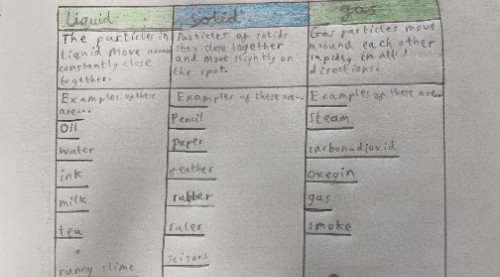 Liquid
The particles in
liquid move around
constantly close
together.
Examples of these
are...
Oil
water
ink
milk
tea
runny slime
Solid
Particles of solids
stay close together
and move slightly on
the spot.
Examples of these are...
Pencil
Paper
feather
rubber
ruler
scisors
gas
Gas particles move
around each other
rapidly in all
directions.
Examples of these are...
steam
carbon-dioxid
oxegin
gas
smoke